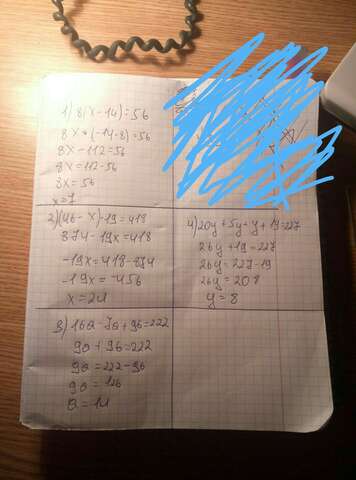 1) 8(x-14)=56
8x+(-14·8)=56
8x-112=56
8x=112-56
8x=56
x=7
2)(46-x)·19=418
874-19x=418
-19x=418-874
-19x=-456
x=24
4)20y+5y+y+19=227
26y+19=227
26y=227-19
26y=208
y=8
3)16a-7a+96=222
9a+96=222
9a=222-96
9a=126
a=14